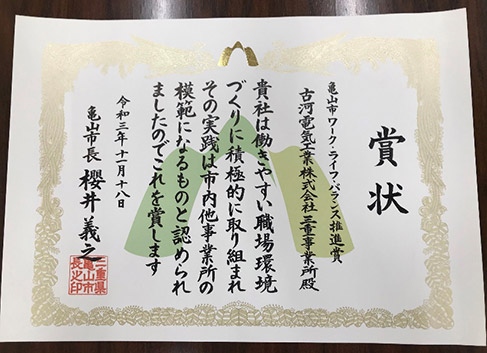 賞状
亀山市ワーク・ライフ・バランス推進賞
古河電気工業株式会社 三重事業所殿
貴社は働きやすい職場環境
づくりに積極的に取り組まれ
その実践は市内他事業所の
模範になるものと認められ
ましたのでこれを賞します
令和三年十一月十八日
亀山市長 櫻井義之
三重県
亀山市
長之印